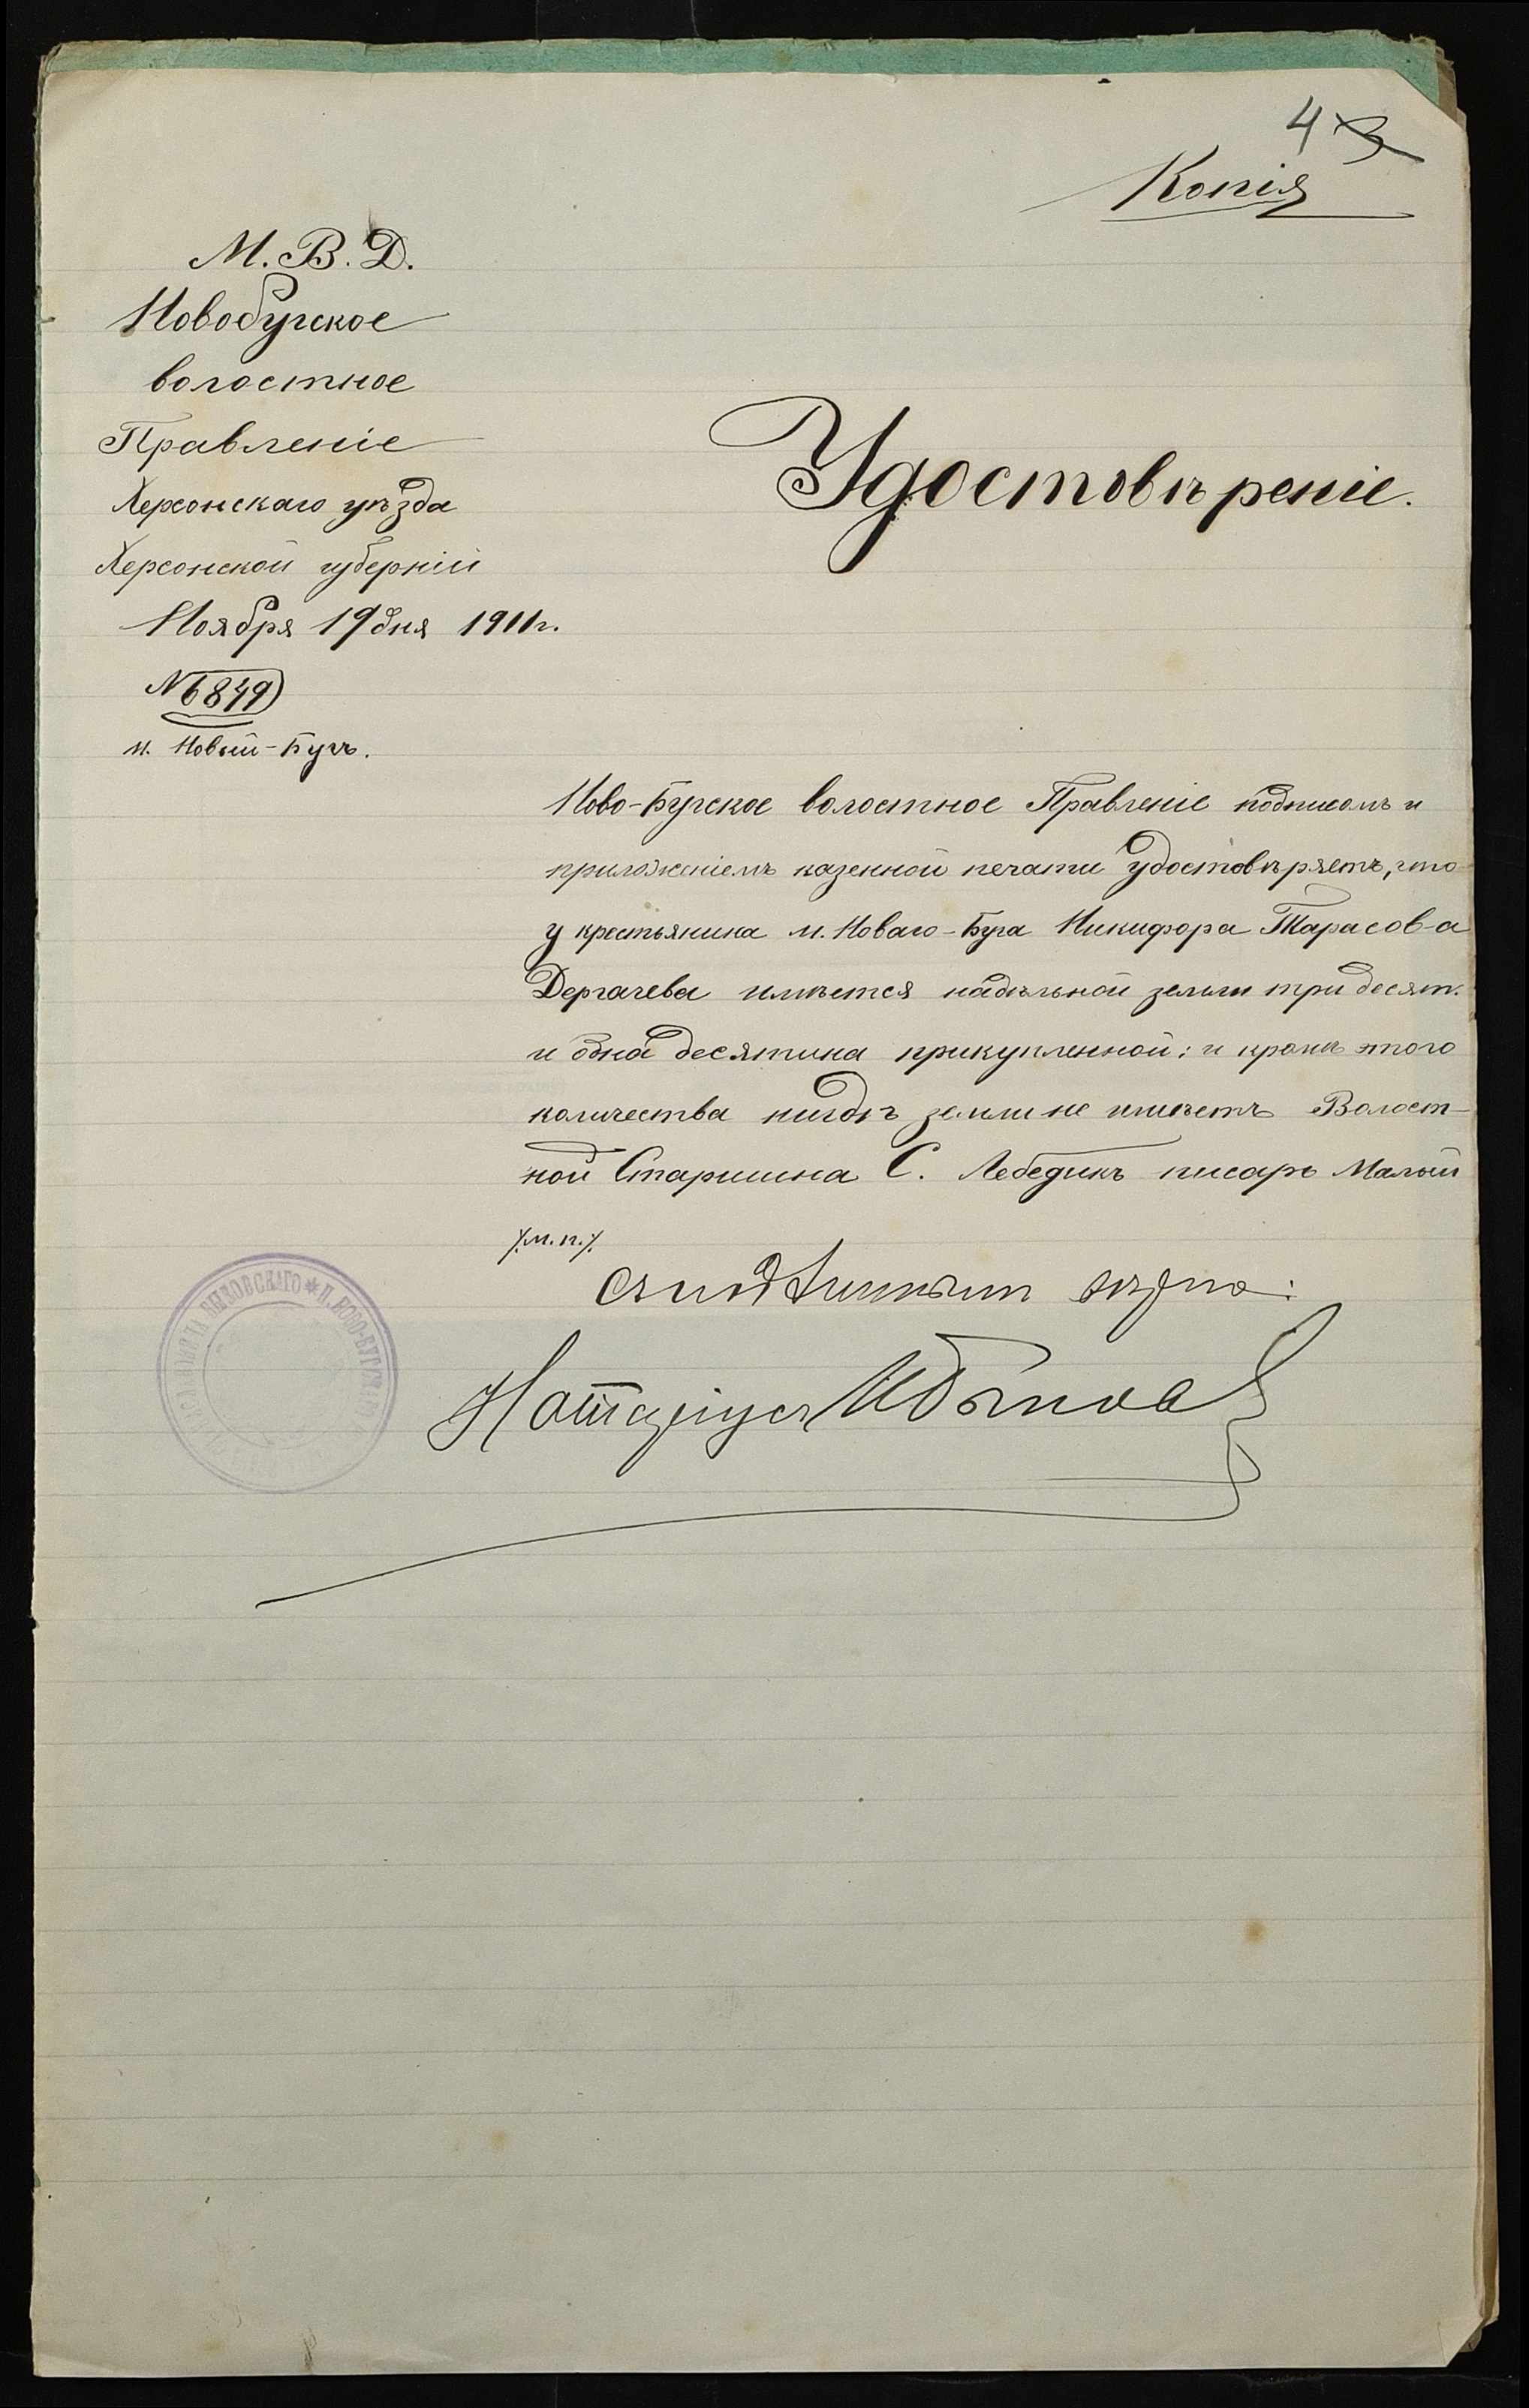 4 3
Копія
М. В. Д.
Новобугское
волостное
Правленіе
Херсонскаго уѣзда
Херсонской губерніи
Ноября 19 дня 1911 г.
№ 6849
м. Новый-Бугъ.
Удостовѣреніе.
Ново-Бугское волостное Правленіе подписомъ и
приложеніемъ казенной печати удостовѣряетъ, что
у крестьянина м. Новаго-Буга Никифора Тарасов-а
Дергачева имѣется надѣльной земли три десят.
и одна десятина прикупленной; и кромѣ этого
количества нигдѣ земли не имѣетъ Волост-
ной Старшина С. Лебедикъ писарь Малый
/м.п./
Съ подлиннымъ вѣрно: